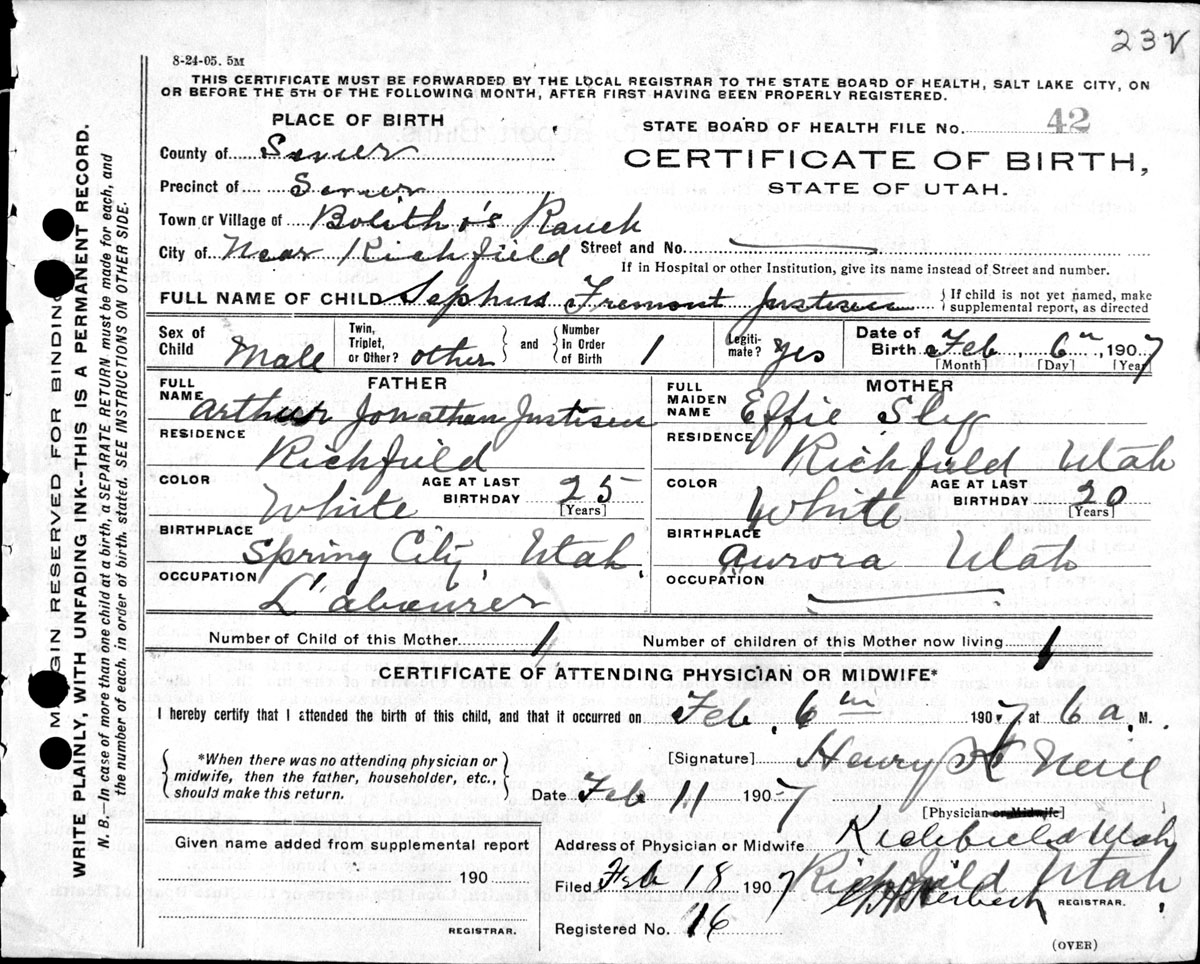 232
8-24-05. 5M
THIS CERTIFICATE MUST BE FORWARDED BY THE LOCAL REGISTRAR TO THE STATE BOARD OF HEALTH, SALT LAKE CITY, ON
OR BEFORE THE 5TH OF THE FOLLOWING MONTH, AFTER FIRST HAVING BEEN PROPERLY REGISTERED.
PLACE OF BIRTH
STATE BOARD OF HEALTH FILE No. 42
County of Sevier
CERTIFICATE OF BIRTH,
Precinct of Sevier
STATE OF UTAH.
Town or Village of Bolitho's Ranch
City of Near Richfield Street and No.
If in Hospital or other Institution, give its name instead of Street and number.
FULL NAME OF CHILD Sephus Fremont Justisen { If child is not yet named, make
supplemental report, as directed
Sex of Child Male Twin, Triplet, or Other? other } and { Number in Order of Birth 1 Legiti-mate? Yes Date of Birth Feb. 6th, 1907
[Month] [Day] [Year]
FATHER
MOTHER
FULL NAME Arthur Jonathan Justisen
FULL MAIDEN NAME Effie Sly
RESIDENCE Richfield
RESIDENCE Richfield Utah
COLOR White AGE AT LAST BIRTHDAY 25 [Years]
COLOR White AGE AT LAST BIRTHDAY 20 [Years]
BIRTHPLACE Spring City, Utah.
BIRTHPLACE Aurora Utah
OCCUPATION Labourer
OCCUPATION
Number of Child of this Mother 1 Number of children of this Mother now living 1
CERTIFICATE OF ATTENDING PHYSICIAN OR MIDWIFE*
I hereby certify that I attended the birth of this child, and that it occurred on Feb. 6th 1907, at 6 a. M.
{ *When there was no attending physician or
midwife, then the father, householder, etc.,
should make this return. }
[Signature] Henry K Neill
Date Feb 11 1907
[Physician or Midwife]
Given name added from supplemental report
190
REGISTRAR.
Address of Physician or Midwife Richfield Utah
Richfield Utah
Filed Feb 18 1907
REGISTRAR.
Registered No. 16
(OVER)
MARGIN RESERVED FOR BINDING
WRITE PLAINLY, WITH UNFADING INK--THIS IS A PERMANENT RECORD.
N. B.—In case of more than one child at a birth, a SEPARATE RETURN must be made for each, and
the number of each, in order of birth, stated. SEE INSTRUCTIONS ON OTHER SIDE.